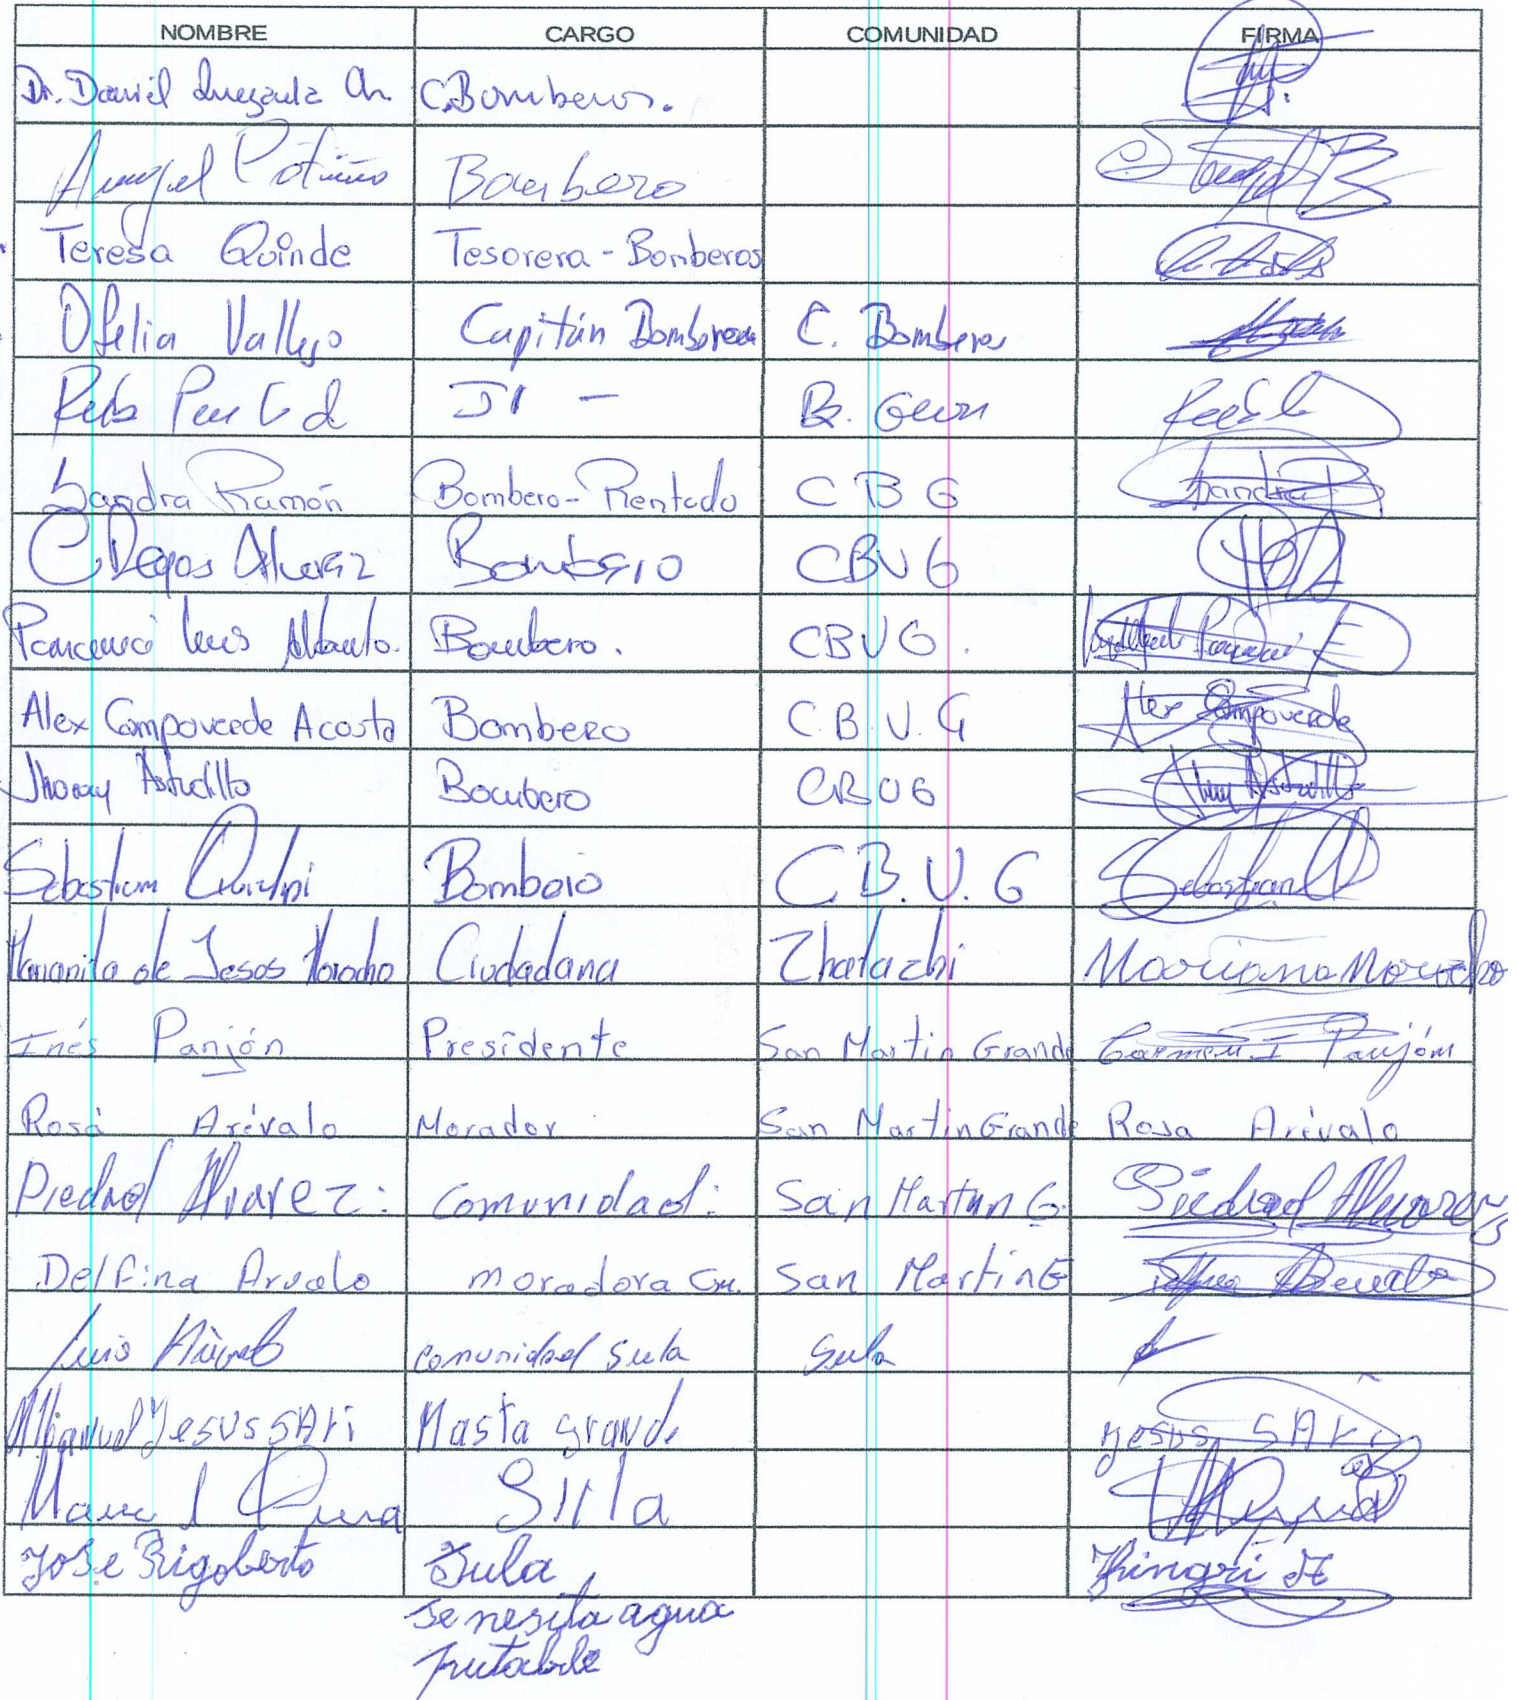 NOMBRE CARGO COMUNIDAD FIRMA
Dr. Daniel Quezada Ch. C.Bomberos.
Angel Patiño Bombero
Teresa Quinde Tesorera - Bomberos
Ofelia Vallejo Capitán Bomberos C. Bomberos
B.
Sandra Ramón Bombero - Rentado C B G Sandra R
Alvarez Bombero CBVG
Luis Alberto. Bombero. CBVG.
Alex Campoverde Acosta Bombero C.B.V.G Alex Campoverde
Jhonny Astudillo Bombero CBVG Jhony Astudillo
Sebastian Bombero C.B.V.G Sebastian
Marianita de Jesos Morocho Ciudadana Zhatazhi Mariana Morocho
Inés Panjón Presidente San Martin Grande Carmen I Panjón
Rosa Arévalo Morador San Martin Grande Rosa Arévalo
Piedad Alvarez: comunidad: San Martin G. Piedad Alvarez
Delfina Arvalo moradora Cm. San Martin G
Luis comunidad Sula Sula
Jesus SARi Masta grande yesus SARi
Sula
Jose Rigoberto Sula
se nesita agua
putable